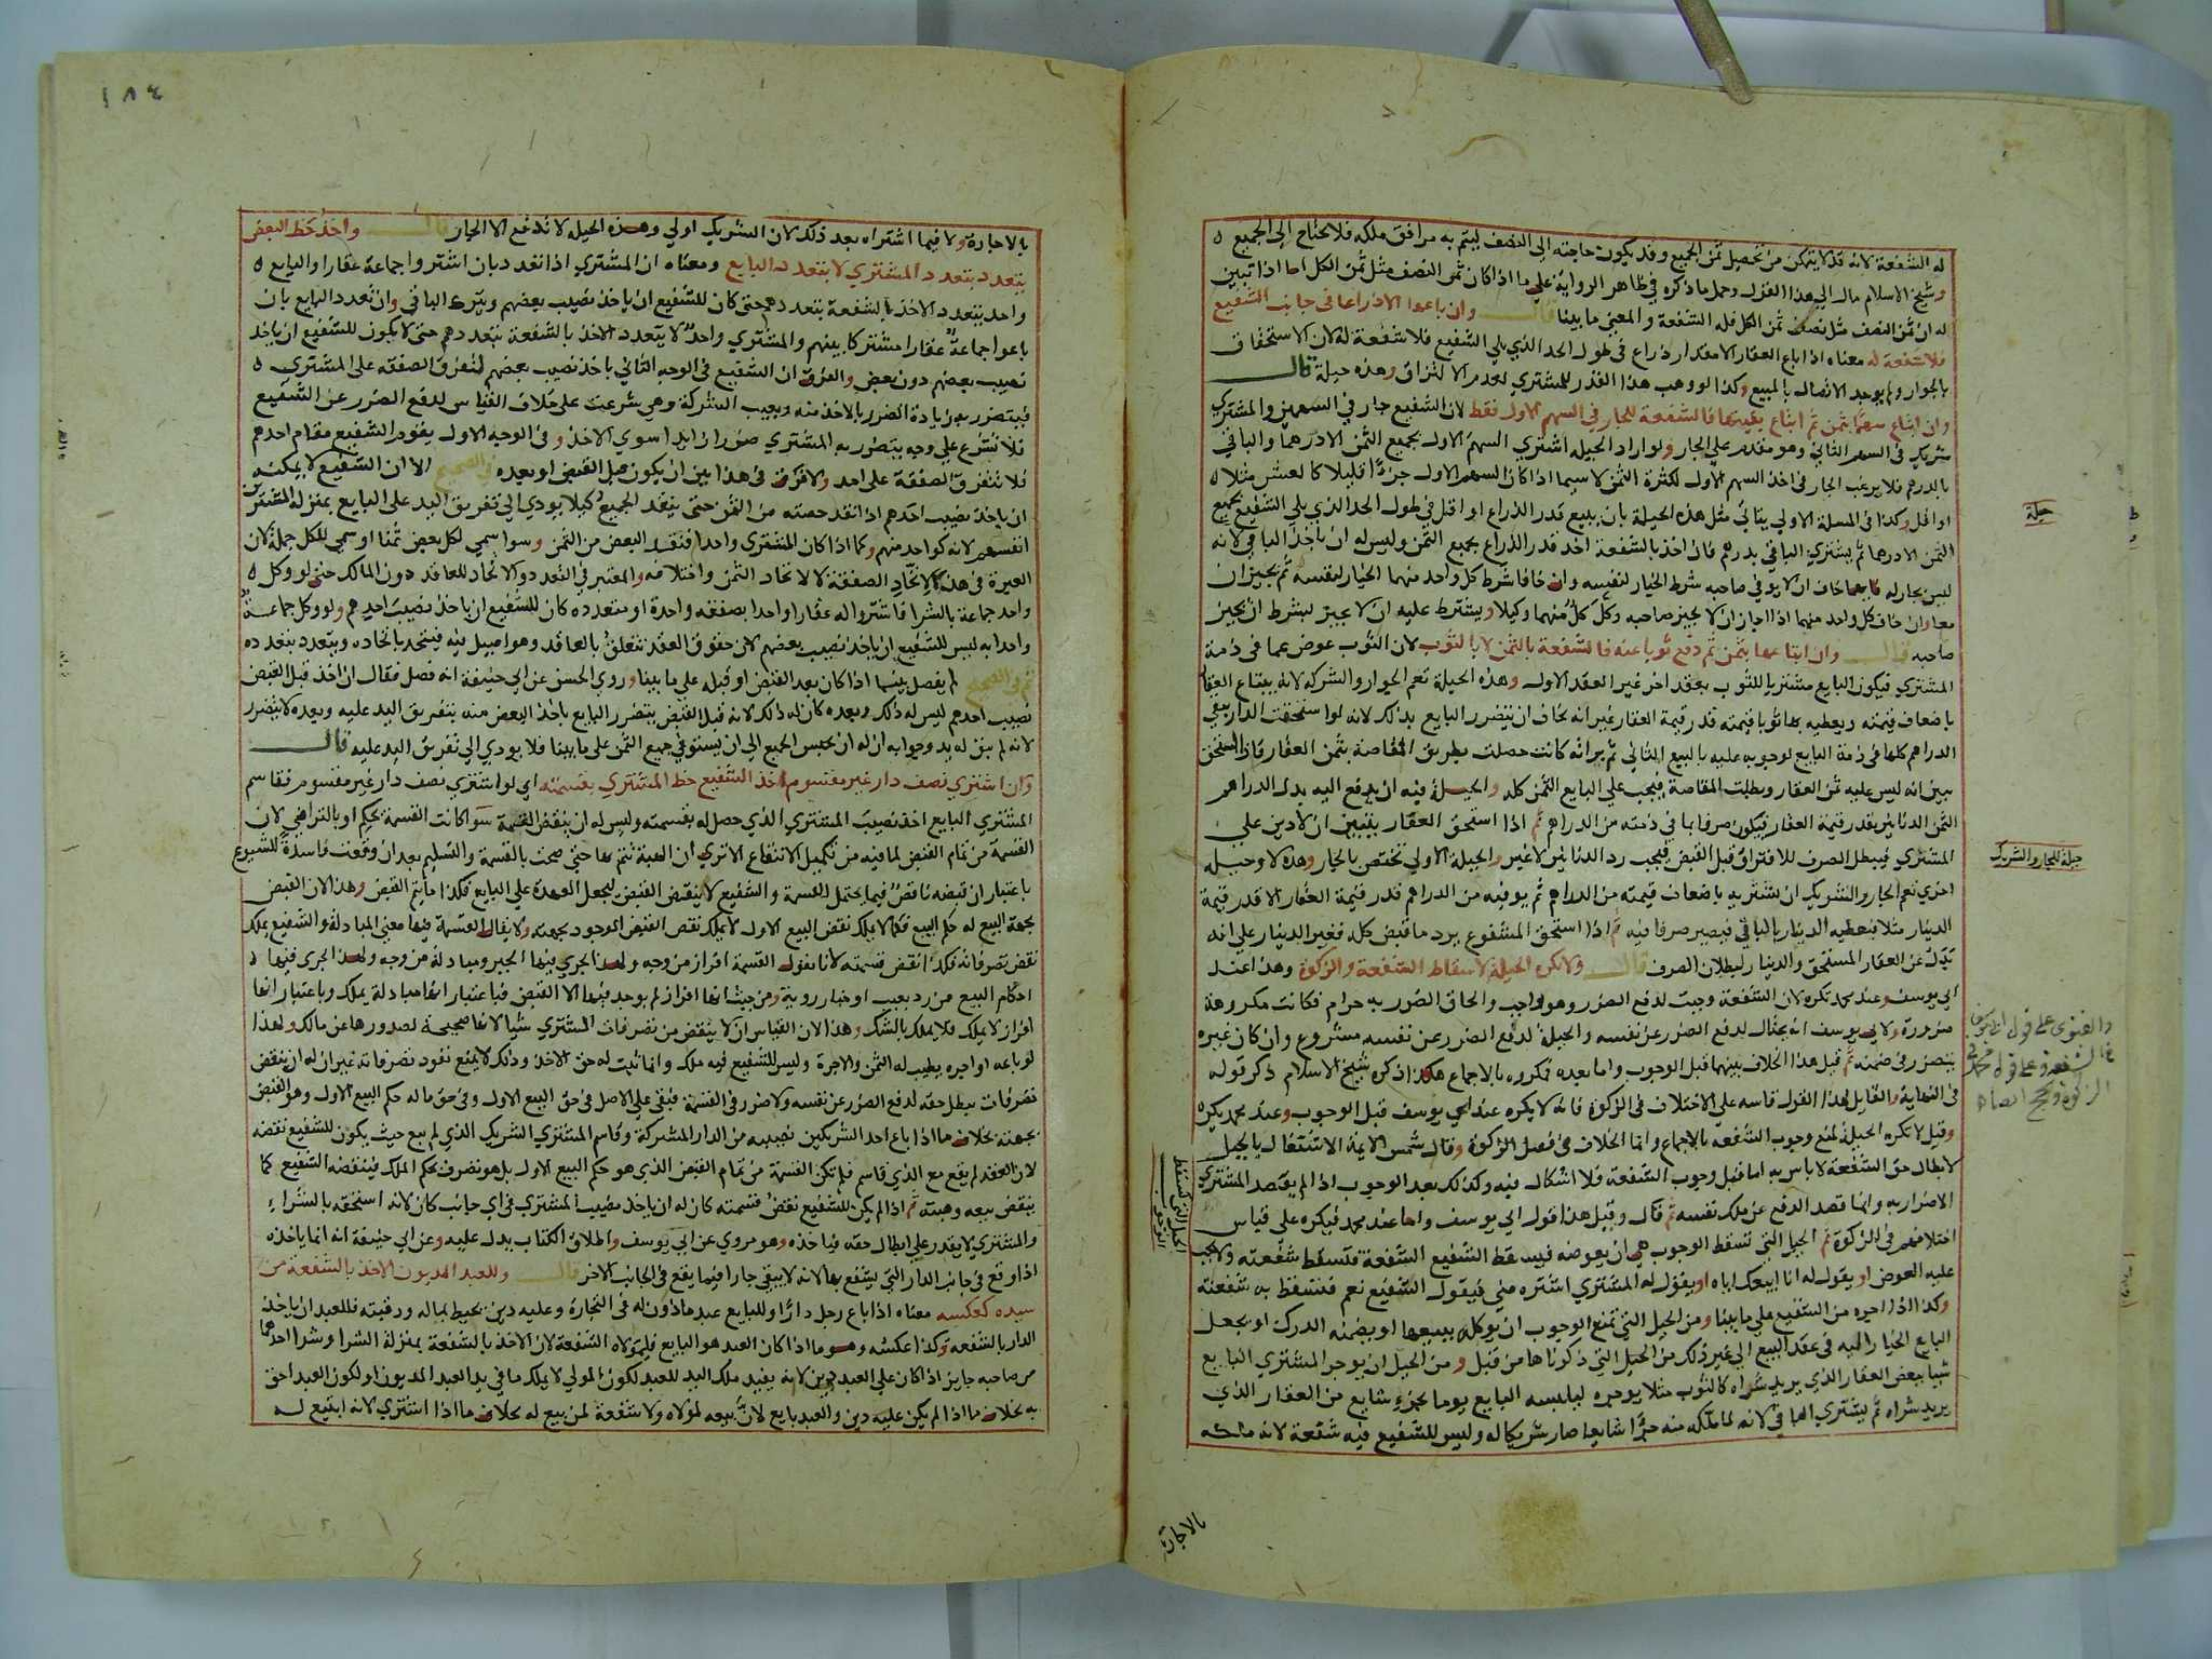 له الشفعة لانه قد لا يتمكن من تحصيل ثمن الجميع وقد يكون حاجته الى النصف ليتم به مرافق ملكه فلا يحتاج الى الجميع
وشيخ الاسلام مال الى هذا القول وحمل ما ذكره في ظاهر الرواية على ما اذا كان ثمن النصف مثل ثمن الكل اما اذا تبين
له ان ثمن النصف مثل نصف ثمن الكل فله الشفعة والمعنى ما بينا قال وان باعوا الا ذراعا في جانب الشفيع
فلا شفعة له معناه اذا باع العقار الا مقدار ذراع في طول الحد الذي يلي الشفيع فلا شفعة له لان الاستحقاق
بالجوار ولم يوجد الاتصال بالمبيع وكذا لو وهب هذا القدر للمشتري لعدم الالتزاق وهذه حيلة قال
وان ابتاع سهما بثمن ثم ابتاع بقيتها فالشفعة للجار في السهم الاول فقط لان الشفيع جار في السهمين والمشتري
شريك في السهم الثاني وهو مقدم على الجار ولو اراد الحيلة اشترى السهم الاول بجميع الثمن الا درهما والباقي
بالدرهم فلا يرغب الجار في اخذ السهم الاول لكثرة الثمن لا سيما اذا كان السهم الاول جزءا قليلا كالعشر مثلا
او اقل وكذا في المسئلة الاولى يتاتى مثل هذه الحيلة بان يبيع قدر الذراع او اقل في طول الحد الذي يلي الشفيع بجميع
الثمن الا درهما ثم يشتري الباقي بدرهم فان اخذ بالشفعة اخذ قدر الذراع بجميع الثمن وليس له ان ياخذ الباقي لانه
ليس بجار له فايهما خاف ان لا يوفي صاحبه شرط الخيار لنفسه وان خافا شرط كل واحد منهما الخيار لنفسه ثم يجيزان
معا وان خاف كل واحد منهما اذا اجاز ان لا يجيز صاحبه وكل كل منهما وكيلا ويشترط عليه ان لا يجيز بشرط ان يجيز
صاحبه قال وان ابتاعها بثمن ثم دفع ثوبا عنه فالشفعة بالثمن لا بالثوب لان الثوب عوض عما في ذمة
المشتري فيكون البايع مشتريا للثوب بعقد اخر غير العقد الاول وهذه الحيلة تعم الجوار والشركة لانه يبتاع العقار
باضعاف قيمته ويعطيه بها ثوبا قيمته قدر قيمة العقار غير انه يخاف ان يتضرر البايع بذلك لانه لو استحقت الدار يبقى
الدراهم كلها في ذمة البايع لوجوبه عليه بالبيع الثاني ثم براته كانت حصلت بطريق المقاصة بثمن العقار فاذا استحق
تبين انه ليس عليه ثمن العقار وبطلت المقاصة فيجب على البايع الثمن كله والحيلة فيه ان يدفع اليه بدل الدراهم
الثمن الدنانير بقدر قيمة العقار فيكون صرفا بما في ذمته من الدراهم ثم اذا استحق العقار يتبين ان لا دين على
المشتري فيبطل الصرف للافتراق قبل القبض فيجب رد الدنانير لا غير والحيلة الاولى تختص بالجار وهذه لا وحيلة
اخرى تعم الجار والشريك ان يشتريه باضعاف قيمته من الدراهم ثم يوفيه من الدراهم قدر قيمة العقار الا قدر قيمة
الدينار مثلا فيعطيه الدينار بالباقي فيصير صرفا فيه ثم اذا استحق المشفوع يرد ما قبض كله فغير الدينار على انه
بدل عن العقار المستحق والدينار لبطلان الصرف قال ولا تكره الحيلة لاسقاط الشفعة والزكوة وهذا عند
ابي يوسف وعند محمد تكره لان الشفعة وجبت لدفع الضرر وهو واجب والحاق الضرر به حرام فكانت مكروهة
ضرورة ولابي يوسف انه يحتال لدفع الضرر عن نفسه والحيلة لدفع الضرر عن نفسه مشروع وان كان غيره
يتضرر في ضمنه ثم قيل هذا الخلاف بينهما قبل الوجوب واما بعده فمكروه بالاجماع هكذا ذكره شيخ الاسلام ذكر قوله
في النهاية والقايل لهذا القول قاسه على الاختلاف في الزكوة فانه لا يكره عند ابي يوسف قبل الوجوب وعند محمد يكره
وقيل لا تكره الحيلة لمنع وجوب الشفعة بالاجماع وانما الخلاف في فصل الزكوة وقال شمس الايمة الاشتغال بالحيل
لابطال حق الشفعة لا باس به اما قبل وجوب الشفعة فلا اشكال فيه وكذلك بعد الوجوب اذا لم يقصد المشتري
الاضرار به وانما قصد الدفع عن ملك نفسه ثم قال وقيل هذا قول ابي يوسف واما عند محمد فيكره على قياس
اختلافهم في الزكوة ثم الحيل التي تسقط الوجوب هي ان يعوضه فيسقط الشفيع الشفعة فتسقط شفعته ولا يجب
عليه العوض او يقول له انا ابيعك اياه او يقول له المشتري اشتره مني فيقول الشفيع نعم فتسقط به شفعته
وكذا اذا اجره من الشفيع على ما بينا ومن الحيل التي تمنع الوجوب ان يوكله ببيعها او يضمنه الدرك او يجعل
البايع الخيار اليه في عقد البيع الى غير ذلك من الحيل التي ذكرناها من قبل ومن الحيل ان يوجر المشتري البايع
شيا ببعض العقار الذي يريد شراه كالثوب مثلا يوجره ليلبسه البايع يوما بجزء شايع من العقار الذي
يريد شراه ثم يشتري الباقي لانه لما ملكه منه جزءا شايعا صار شريكا له وليس للشفيع فيه شفعة لانه ملكه
حيلة
حيلة للجار والشريك
والفتوى على قول ابي يوسف
في الشفعة وعلى قول محمد في
الزكوة
الحيل التي تسقط
الوجوب
بالاجارة
١٨٤
بالاجارة ولا فيما اشتراه بعد ذلك لان الشريك اولى وهذه الحيلة لا تدفع الا الجار قال واخذ حظ البعض
يتعدد بتعدد المشتري لا بتعدد البايع ومعناه ان المشتري اذا تعدد بان اشتروا جماعة عقارا والبايع
واحد يتعدد الاخذ بالشفعة بتعددهم حتى كان للشفيع ان ياخذ نصيب بعضهم ويترك الباقي وان تعدد البايع بان
باعوا جماعة عقارا مشتركا بينهم والمشتري واحد لا يتعدد الاخذ بالشفعة بتعددهم حتى لا يكون للشفيع ان ياخذ
نصيب بعضهم دون بعض والفرق ان الشفيع في الوجه الثاني ياخذ نصيب بعضهم لتفرق الصفقة على المشتري
فيتضرر به زيادة الضرر بالاخذ منه وبعيب الشركة وهي شرعت على خلاف القياس لدفع الضرر عن الشفيع
فلا تشرع على وجه يتضرر به المشتري ضررا زايدا سوى الاخذ وفي الوجه الاول يقوم الشفيع مقام احدهم
فلا تتفرق الصفقة على احد ولا فرق في هذا بين ان يكون قبل القبض او بعده في الصحيح الا ان الشفيع لا يمكنه
ان ياخذ نصيب احدهم اذا نقد حصته من الثمن حتى ينقد الجميع كيلا يودي الى تفريق اليد على البايع بمنزلة المشترين
انفسهم لانه كواحد منهم وكما اذا كان المشتري واحدا فنقد البعض من الثمن وسوا سمي لكل بعض ثمنا او سمي للكل جملة لان
العبرة في هذا لاتحاد الصفقة لا لاتحاد الثمن واختلافه والمعتبر في التعدد والاتحاد للعاقد دون المالك حتى لو وكل
واحد جماعة بالشرا فاشتروا له عقارا واحدا بصفقة واحدة او متعددة كان للشفيع ان ياخذ نصيب احدهم ولو وكل جماعة
واحدا به ليس للشفيع ان ياخذ نصيب بعضهم لان حقوق العقد تتعلق بالعاقد وهو اصيل فيه فيتحد باتحاده ويتعدد بتعدده
ثم في الصحيح لم يفصل بينهما اذا كان بعد القبض او قبله على ما بينا وروى الحسن عن ابي حنيفة انه فصل فقال ان اخذ قبل القبض
نصيب احدهم ليس له ذلك وبعده كان له ذلك لانه قبل القبض يتضرر البايع باخذ البعض منه بتفريق اليد عليه وبعده لا يتضرر
لانه لم يبق له يد وجوابه ان له ان يحبس الجميع الى ان يستوفي جميع الثمن على ما بينا فلا يودي الى تفريق اليد عليه قال
وان اشترى نصف دار غير مقسوم اخذ الشفيع حظ المشتري بقسمته اي لو اشترى نصف دار غير مقسوم فقاسم
المشتري البايع اخذ نصيب المشتري الذي حصل له بقسمته وليس له ان ينقض القسمة سوا كانت القسمة بحكم او بالتراضي لان
القسمة من تمام القبض لما فيه من تكميل الانتفاع الا ترى ان الهبة تتم بها حتى صحت بالقسمة والتسليم بعد ان وقعت فاسدة للشيوع
باعتبار ان قبضه ناقص فيما يحتمل القسمة والشفيع لا ينقض القبض ليجعل العهدة على البايع فكذا ما يتم القبض وهذا لان القبض
بجهة البيع له حكم البيع فكما لا يملك نقض البيع الاول لا يملك نقض القبض الموجود بجهته ولا يقال القسمة فيها معنى المبادلة والشفيع يملك
نقض تصرفاته فكذا نقض قسمته لانا نقول القسمة افراز من وجه ولهذا يجري فيها الجبر ومبادلة من وجه ولهذا يجري فيها
احكام البيع من رد بعيب او خيار روية ومن حيث انها افراز لم يوجد فيها الا القبض فباعتبار انها مبادلة يملك وباعتبار انها
افراز لا يملك فلا يملك بالشك وهذا لان القياس ان لا ينقض من تصرفات المشتري شيا لانها صحيحة لصدورها عن مالك ولهذا
لو باعه او اجره يطيب له الثمن والاجرة وليس للشفيع فيه ملك وانما ثبت له حق الاخذ وذلك لا يمنع نفوذ تصرفاته غير ان له ان ينقض
تصرفات تبطل حقه لدفع الضرر عن نفسه ولا ضرر في القسمة فبقي على الاصل في حق البيع الاول وفي حق ما له حكم البيع الاول وهو القبض
بجهته بخلاف ما اذا باع احد الشريكين نصيبه من الدار المشتركة وقاسم المشتري الشريك الذي لم يبع حيث يكون للشفيع نقضه
لان العقد لم يقع مع الذي قاسم فلم تكن القسمة من تمام القبض الذي هو حكم البيع الاول بل هو تصرف بحكم الملك فينقضه الشفيع كما
ينقض بيعه وهبته ثم اذا لم يكن للشفيع نقض قسمته كان له ان ياخذ نصيب المشتري في اي جانب كان لانه استحقه بالشراء
والمشتري لا يقدر على ابطال حقه فياخذه وهو مروي عن ابي يوسف واطلاق الكتاب يدل عليه وعن ابي حنيفة انه انما ياخذه
اذا وقع في جانب الدار التي يشفع بها لانه لا يبقى جارا فيما يقع في الجانب الاخر قال وللعبد المديون الاخذ بالشفعة من
سيده كعكسه معناه اذا باع رجل دارا وللبايع عبد ماذون له في التجارة وعليه دين يحيط بماله ورقبته فللعبد ان ياخذ
الدار بالشفعة وكذا عكسه وهو ما اذا كان العبد هو البايع فلمولاه الشفعة لان الاخذ بالشفعة بمنزلة الشرا وشرا احدهما
من صاحبه جايز اذا كان على العبد دين لانه يفيد ملك اليد للعبد لكون المولى لا يملك ما في يد العبد المديون او لكون العبد احق
به بخلاف ما اذا لم يكن عليه دين والعبد بايع لان بيعه لمولاه ولا شفعة لمن بيع له بخلاف ما اذا اشترى لانه ابتيع له